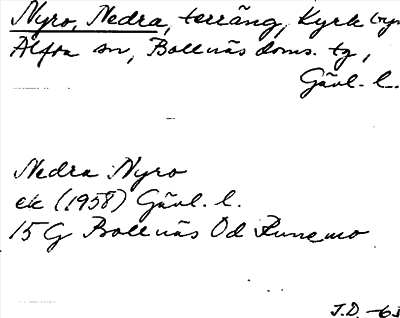 Nyro, Nedra, terräng, Kyrkbyn
Alfta sn, Bollnäs doms. tg,
Gävl. l.
Nedra Nyro
ek (1958) Gävl. l.
15 G Bollnäs Od Runemo
J.D. -63